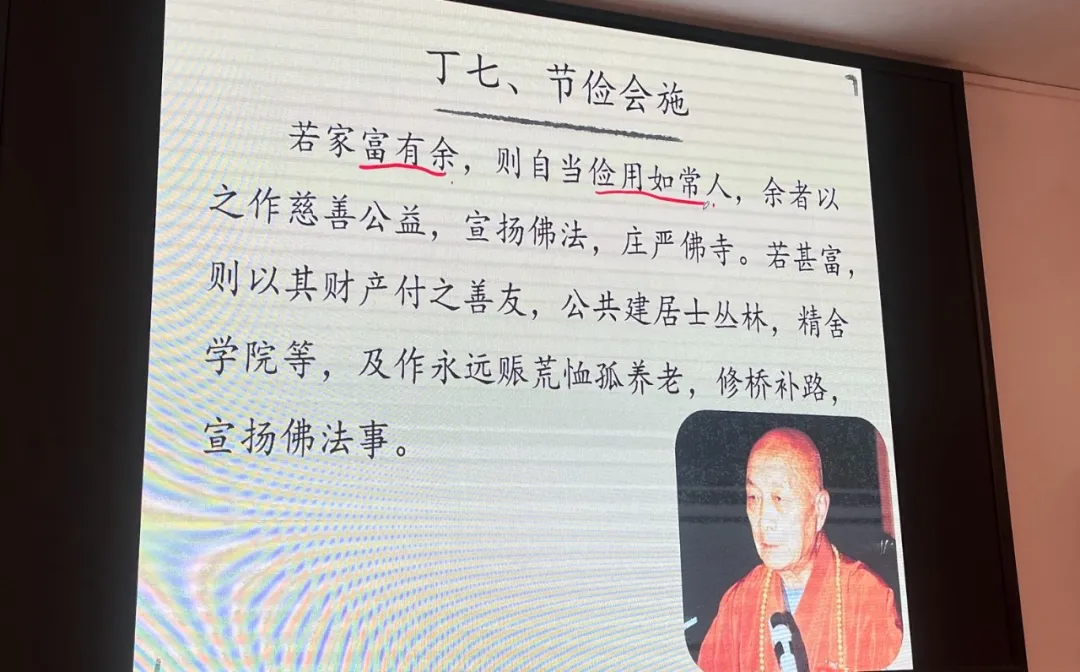 丁七、节俭会施
若家富有余，则自当俭用如常人，余者以
之作慈善公益，宣扬佛法，庄严佛寺。若甚富，
则以其财产付之善友，公共建居士丛林，精舍
学院等，及作永远赈荒恤孤养老，修桥补路，
宣扬佛法事。